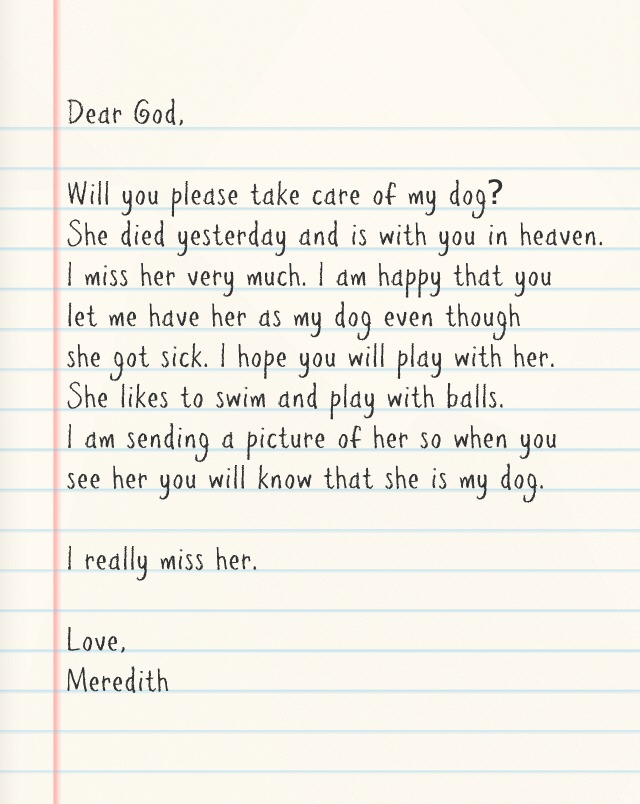 Dear God,
Will you please take care of my dog?
She died yesterday and is with you in heaven.
I miss her very much. I am happy that you
let me have her as my dog even though
she got sick. I hope you will play with her.
She likes to swim and play with balls.
I am sending a picture of her so when you
see her you will know that she is my dog.
I really miss her.
Love,
Meredith